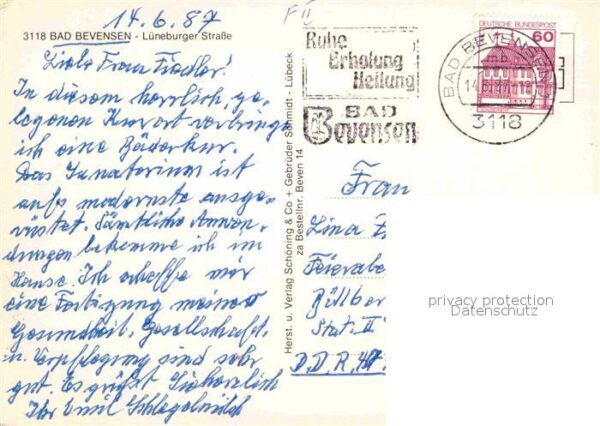 14.6.87
F II
3118 BAD BEVENSEN - Lüneburger Straße
Liebe Frau Fiedler!
In diesem herrlich ge-
legenen Kurort verbringe
ich eine Bäderkur.
Das Sanatorium ist
aufs modernste ausge-
rüstet. Sämtliche Anwen-
dungen bekomme ich im
Hause. Ich erhoffe mir
eine Festigung meiner
Gesundheit. Gesellschaft
u. Verpflegung sind sehr
gut. Es grüßt Sie herzlich
Ihr Emil Schlegelmilch
Herst. u. Verlag Schöning & Co + Gebrüder Schmidt - Lübeck
za Bestellnr. Beven 14
Ruhe
Erholung
Heilung
BAD
Bevensen
BAD BEVENSEN
14.6.87
3118
DEUTSCHE BUNDESPOST
60
Frau
Lina
Feierabe
Stat. II
D.D.R.
privacy protection
Datenschutz